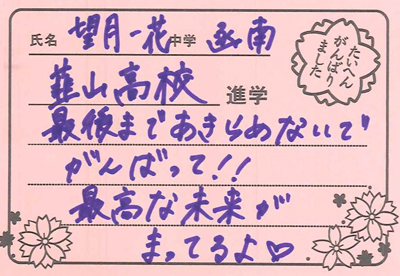 氏名 望月一花 中学 函南
たいへん
がんばり
ました
韮山高校 進学
最後まであきらめないで
がんばって!!
最高な未来が
まってるよ♡